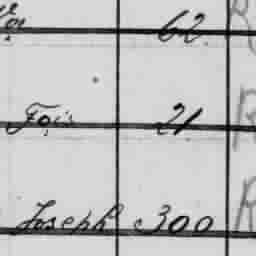 62
Fois 21
Joseph 300